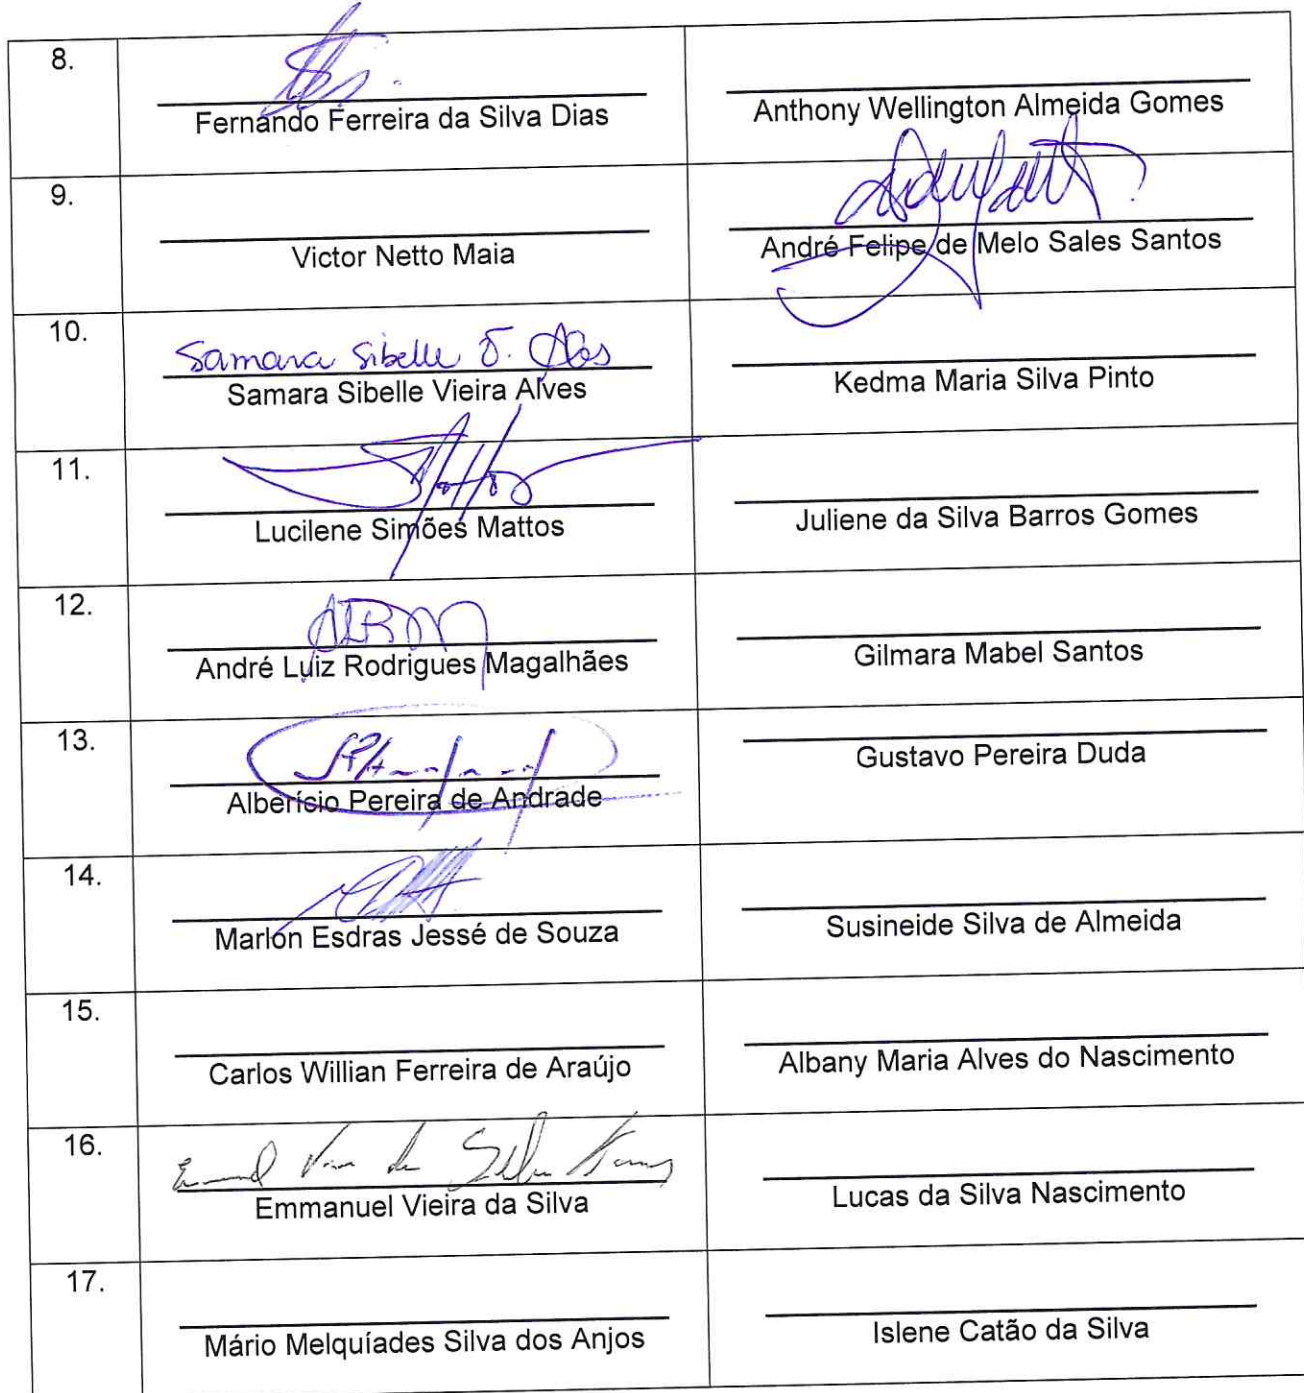 8.
Fernando Ferreira da Silva Dias
Anthony Wellington Almeida Gomes
9.
Victor Netto Maia
André Felipe de Melo Sales Santos
10.
Samara Sibelle V. Alves
Samara Sibelle Vieira Alves
Kedma Maria Silva Pinto
11.
Lucilene Simões Mattos
Juliene da Silva Barros Gomes
12.
André Luiz Rodrigues Magalhães
Gilmara Mabel Santos
13.
Alberício Pereira de Andrade
Gustavo Pereira Duda
14.
Marlon Esdras Jessé de Souza
Susineide Silva de Almeida
15.
Carlos Willian Ferreira de Araújo
Albany Maria Alves do Nascimento
16.
Emmanuel Vieira da Silva
Lucas da Silva Nascimento
17.
Mário Melquíades Silva dos Anjos
Islene Catão da Silva